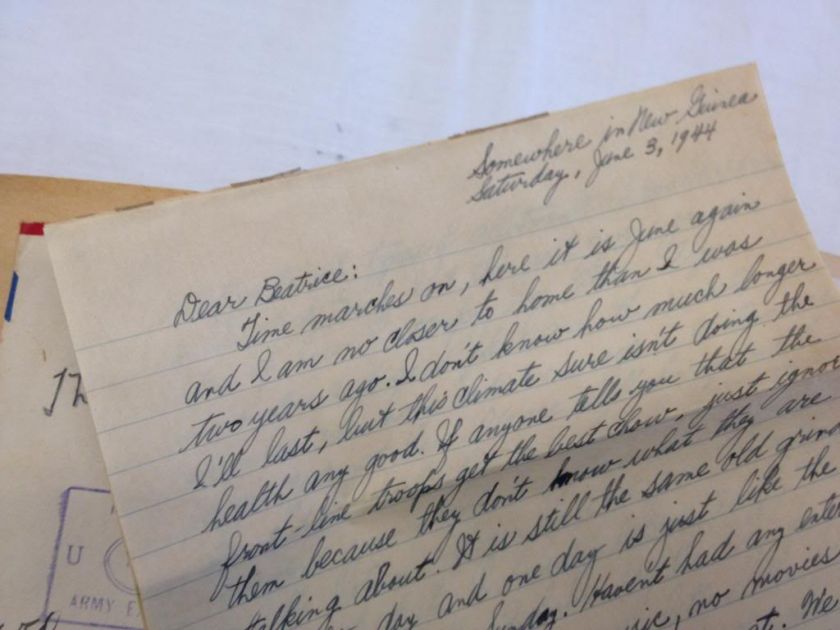 Somewhere in New Guinea
Saturday, June 3, 1944
Dear Beatrice:
Time marches on, here it is June again
and I am no closer to home than I was
two years ago. I don't know how much longer
I'll last, but this climate sure isn't doing the
health any good. If anyone tells you that the
front-line troops get the best chow, just ignore
them because they don't know what they are
talking about. It is still the same old grind
day and one day is just like the
Sunday. Haven't had any
no movies
We
Th
U
ARMY